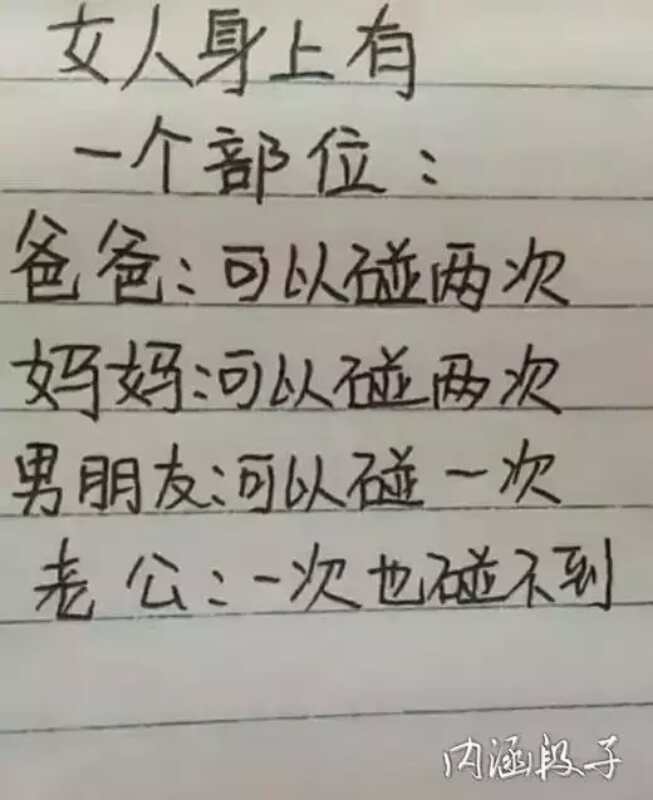 女人身上有
一个部位：
爸爸：可以碰两次
妈妈：可以碰两次
男朋友：可以碰一次
老公：一次也碰不到
内涵段子